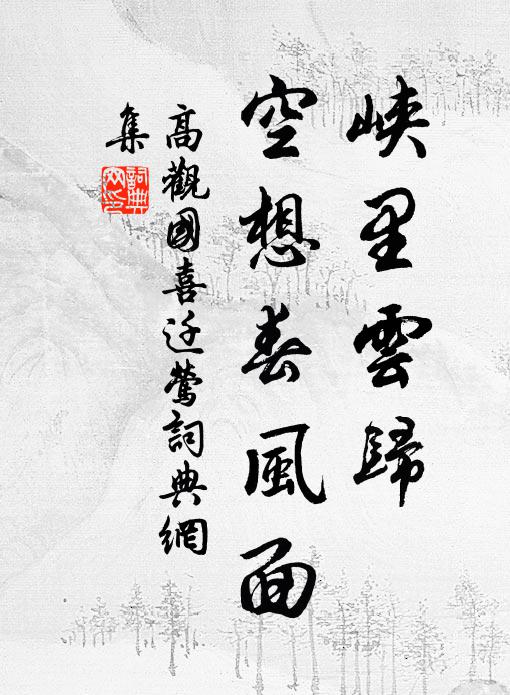 峡里雲歸
空想春風面
高觀國喜迁鶯詞典網
集
詞典
网印